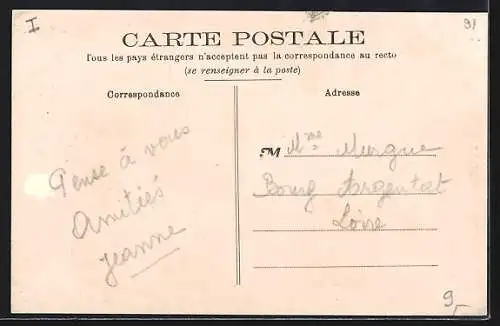 I
91
CARTE POSTALE
Tous les pays étrangers n'acceptent pas la correspondance au recto
(se renseigner à la poste)
Correspondance
Adresse
Pense à vous
Amitiés
Jeanne
M Mme Murgue
Bourg Argental
Loire
9,-